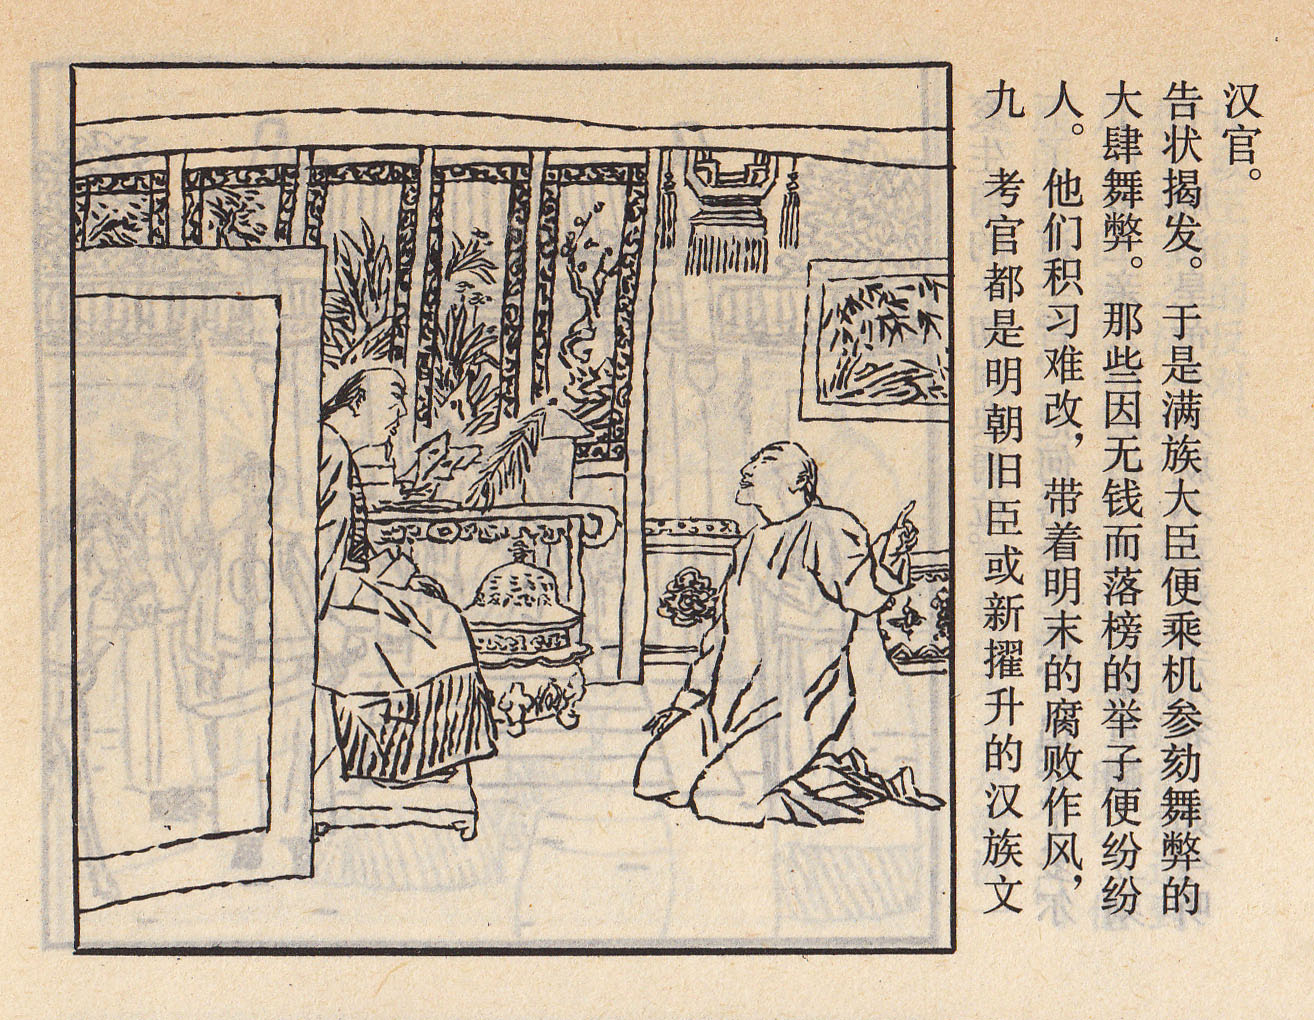 九　考官都是明朝旧臣或新擢升的汉族文
人。他们积习难改，带着明末的腐败作风，
大肆舞弊。那些因无钱而落榜的举子便纷纷
告状揭发。于是满族大臣便乘机参劾舞弊的
汉官。